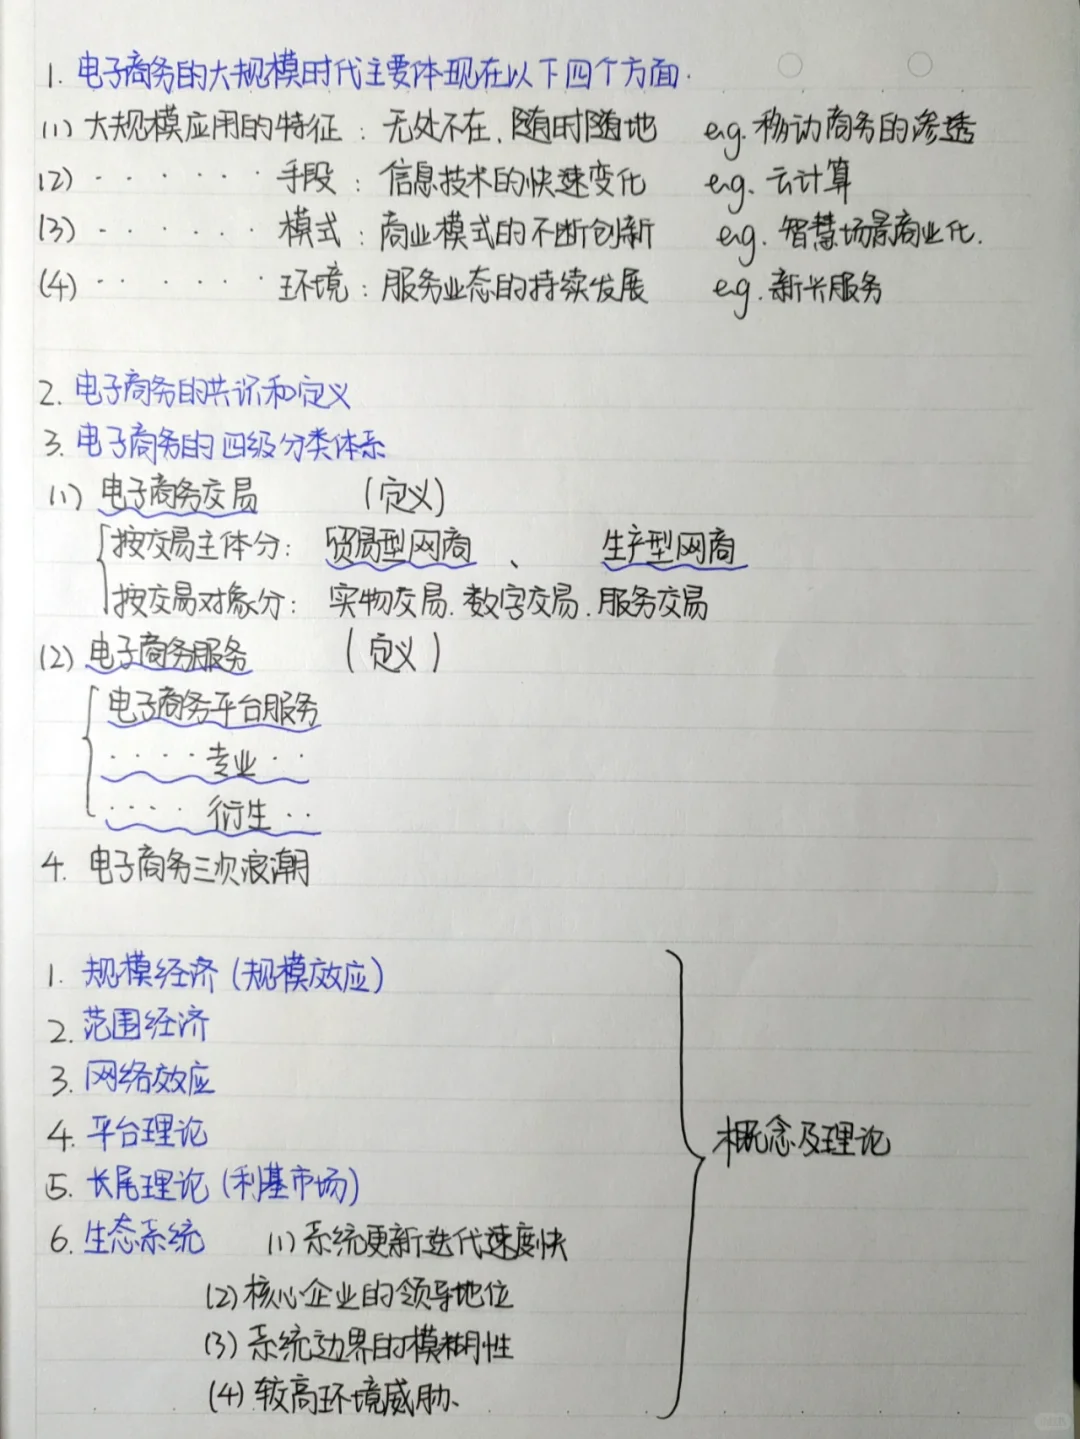 1. 电子商务的大规模时代主要体现在以下四个方面.
(1) 大规模应用的特征：无处不在、随时随地 e.g. 移动商务的渗透
(2) · · · · · · 手段：信息技术的快速变化 e.g. 云计算
(3) · · · · · · 模式：商业模式的不断创新 e.g. 智慧场景商业化.
(4) · · · · · · 环境：服务业态的持续发展 e.g. 新兴服务
2. 电子商务的共识和定义
3. 电子商务的四级分类体系
(1) 电子商务交易 (定义)
按交易主体分：贸易型网商、生产型网商
按交易对象分：实物交易、数字交易、服务交易
(2) 电子商务服务 (定义)
电子商务平台服务
· · · · 专业 · ·
· · · · 衍生 · ·
4. 电子商务三次浪潮
1. 规模经济 (规模效应)
2. 范围经济
3. 网络效应
4. 平台理论
5. 长尾理论 (利基市场)
6. 生态系统 (1) 系统更新迭代速度快
(2) 核心企业的领导地位
(3) 系统边界的模糊性
(4) 较高环境威胁、
概念及理论